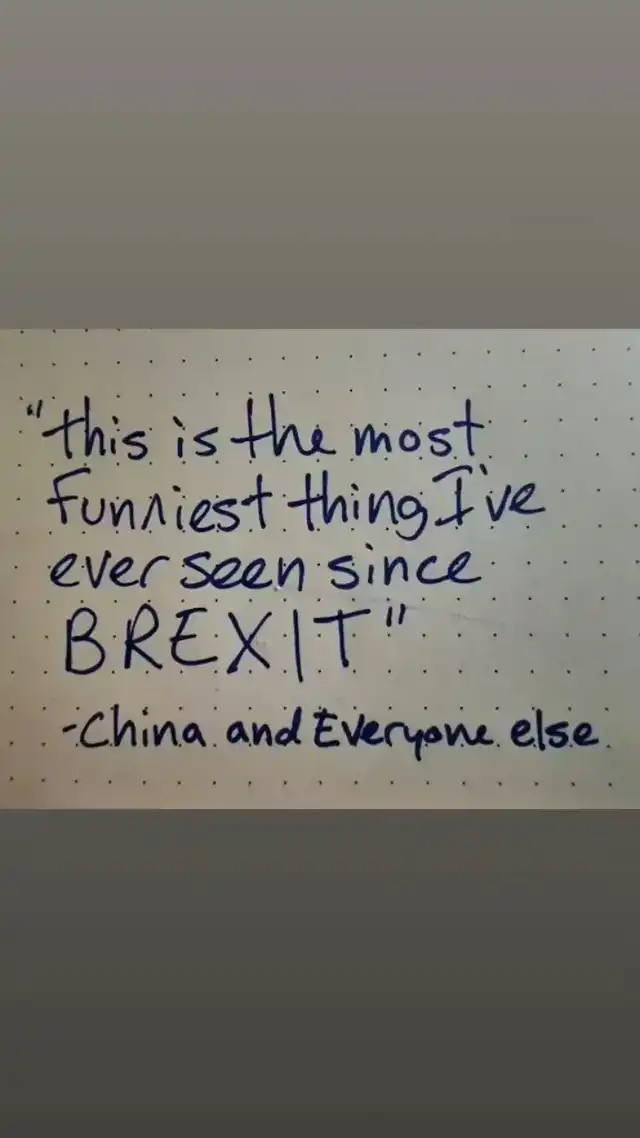 "this is the most
funniest thing I've
ever seen since
BREXIT"
-China and Everyone else